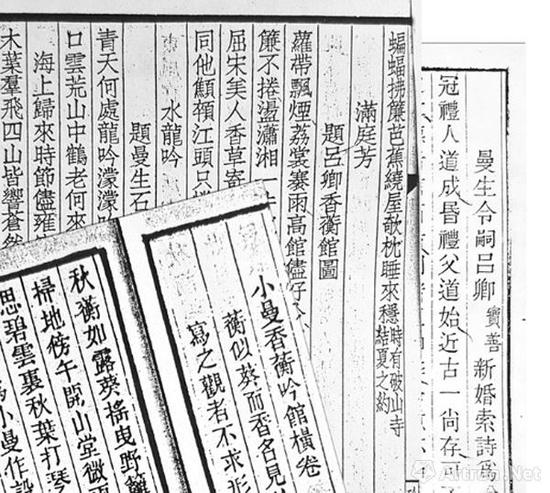 曼生令嗣呂卿寶善新婚索詩為
冠禮人道成昏禮父道始近古一尚存
蝙蝠拂簾芭蕉繞屋欹枕睡來穩時有破山寺結夏之約
滿庭芳
題呂卿香蘅館圖
蘿帶飄煙荔裳褰雨高館儘好
簾不捲盪瀟湘一
屈宋美人香草寄
同他顦顇江頭只
水龍吟
題曼生石
青天何處龍吟濛濛
口雲荒山中鶴老何來
海上歸來時節儘雍
木葉羣飛四山皆響蒼然
小曼香蘅吟館橫卷
蘅似葵而香名見
寫之觀者不求形
秋蘅如露葵搖曳野籬
掃地傍午開山堂微雨
思碧雲裏秋葉打琴
為小曼作設
Artron.Net